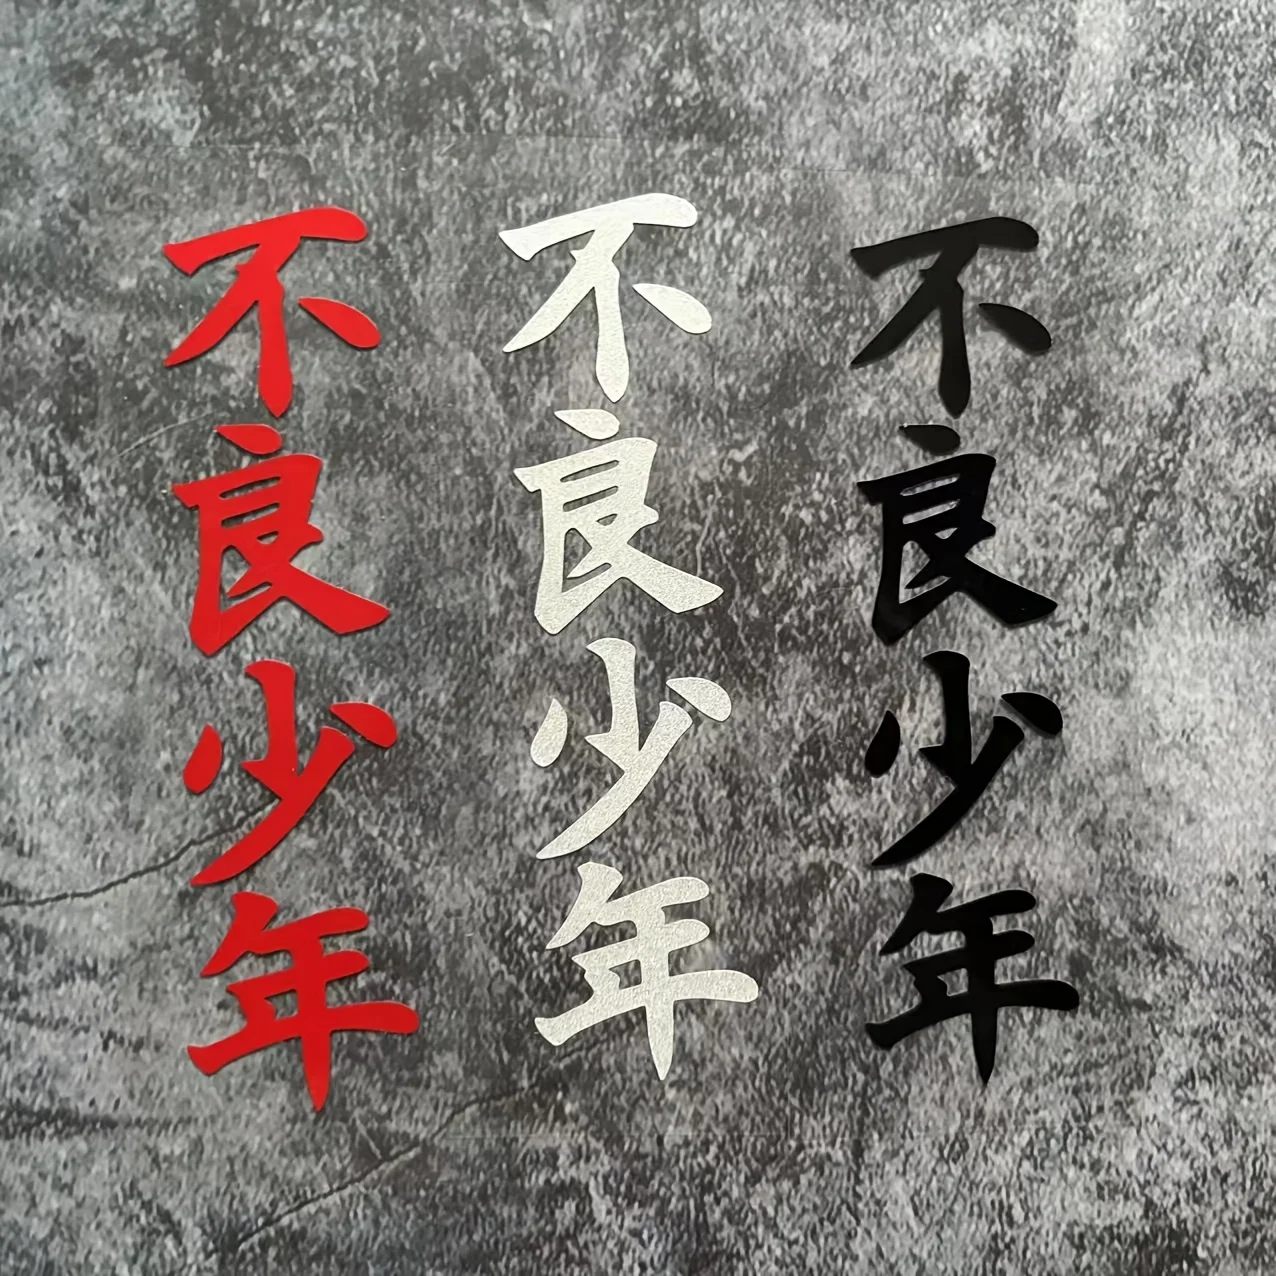 不良少年
不良少年
不良少年